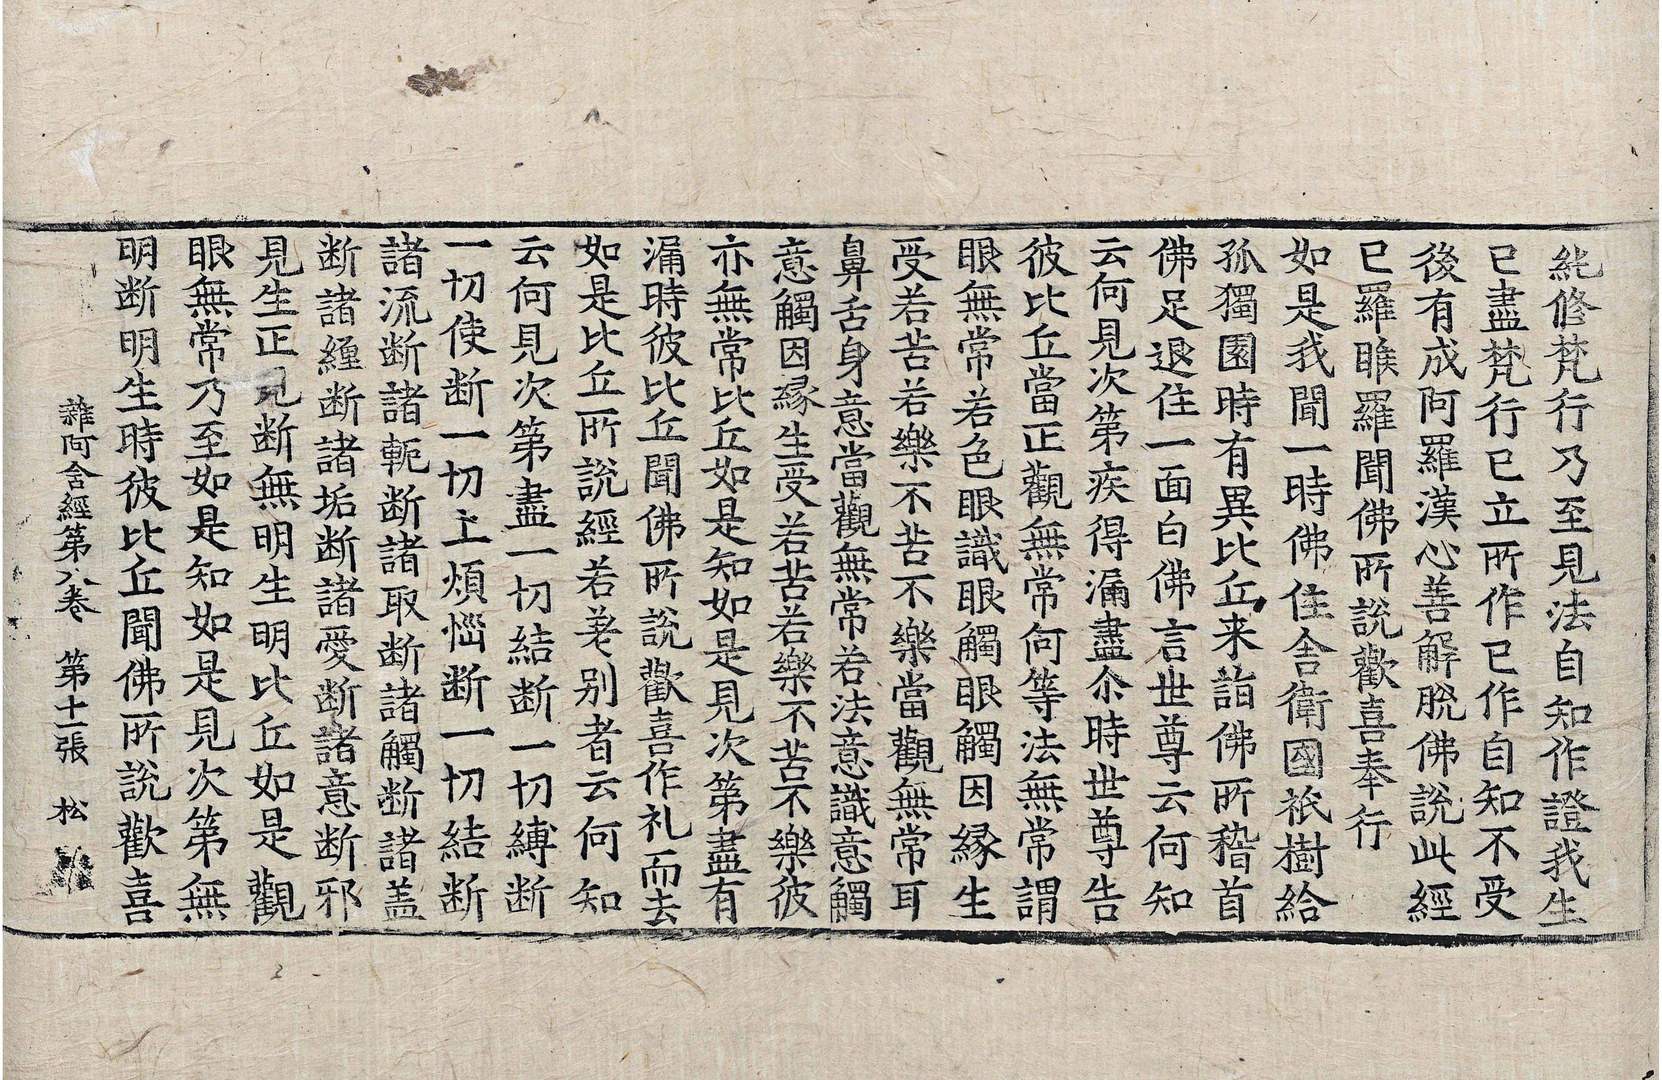 純修梵行乃至見法自知作證我生
已盡梵行已立所作已作自知不受
後有成阿羅漢心善解脫佛說此經
已羅睺羅聞佛所說歡喜奉行
如是我聞一時佛住舍衛國祇樹給
孤獨園時有異比丘来詣佛所稽首
佛足退住一面白佛言世尊云何知
云何見次第疾得漏盡尒時世尊告
彼比丘當正觀無常何等法無常謂
眼無常若色眼識眼觸眼觸因緣生
受若苦若樂不苦不樂當觀無常耳
鼻舌身意當觀無常若法意識意觸
意觸因緣生受若苦若樂不苦不樂彼
亦無常比丘如是知如是見次第盡有
漏時彼比丘聞佛所說歡喜作礼而去
如是比丘所說經若差別者云何知
云何見次第盡一切結断一切縛断
一切使断一切上煩惱断一切結断
諸流断諸軛断諸取断諸觸断諸盖
断諸纏断諸垢断諸愛断諸意断邪
見生正見断無明生明比丘如是觀
眼無常乃至如是知如是見次第無
明断明生時彼比丘聞佛所說歡喜
雜阿含經第八卷 第十一張 松